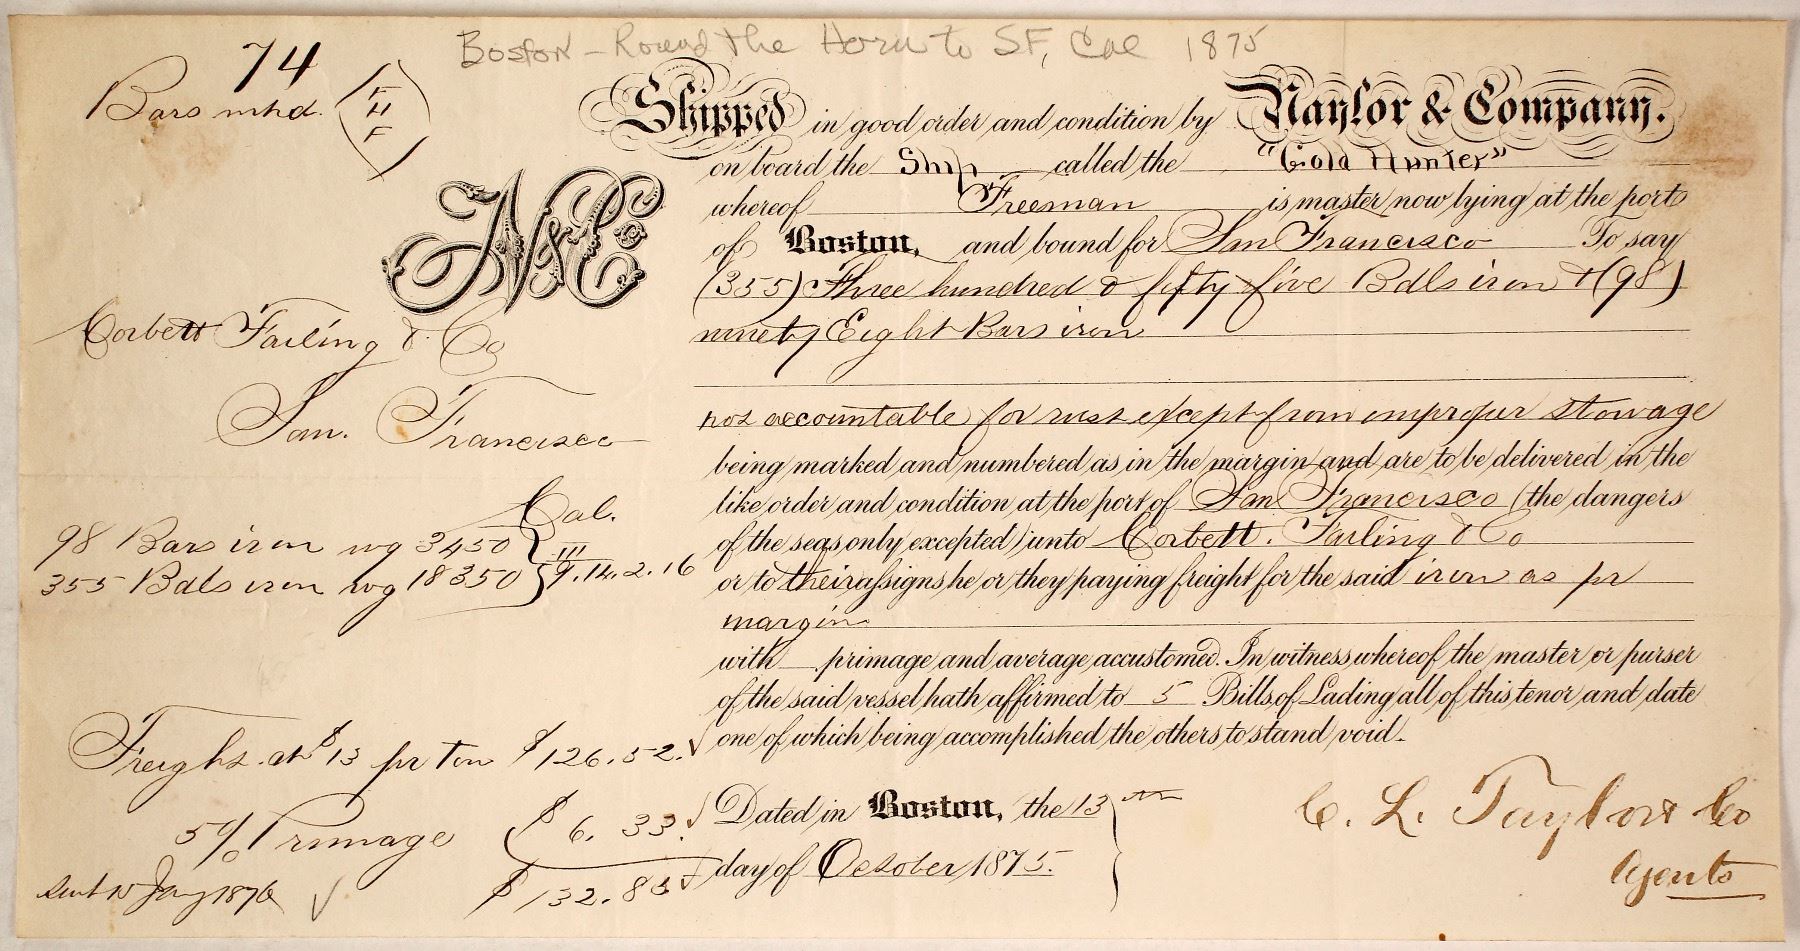 Boston – Round the Horn to SF, Cal 1875
74
Bars mkd.
F
H
F
N&C
Corbett Failing & Co
San. Francisco
Cal.
98 Bars iron wg 3450
355 Bdls iron wg 18350
9.14.2.16
Freight at $13 pr Ton $126.52.
5% Primage $6.33.
$132.85
1876
Shipped in good order and condition by Naylor & Company.
on board the Ship called the "Gold Hunter"
whereof Freeman is master now lying at the port
of Boston, and bound for San Francisco To say
(355) Three hundred & fifty five Bdls iron & (98)
ninety Eight Bars iron
not accountable for rust except from improper stowage
being marked and numbered as in the margin and are to be delivered in the
like order and condition at the port of San Francisco (the dangers
of the seas only excepted) unto Corbett. Failing & Co
or to their assigns he or they paying freight for the said iron as pr
margin
with primage and average accustomed. In witness whereof the master or purser
of the said vessel hath affirmed to 5 Bills of Lading all of this tenor and date
one of which being accomplished the others to stand void.
Dated in Boston, the 13th
day of October 1875.
C. L. Taylor & Co
Agents